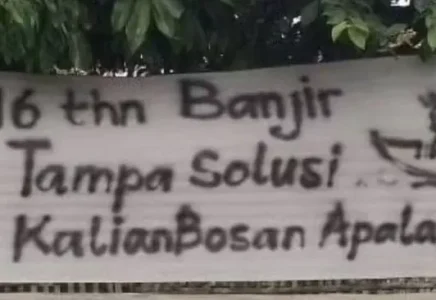 16 thn Banjir
Tampa Solusi
KalianBosan Apala